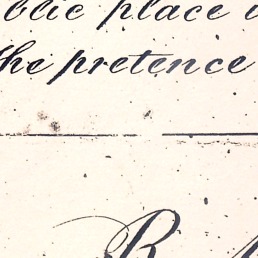 blic place
the pretence
B